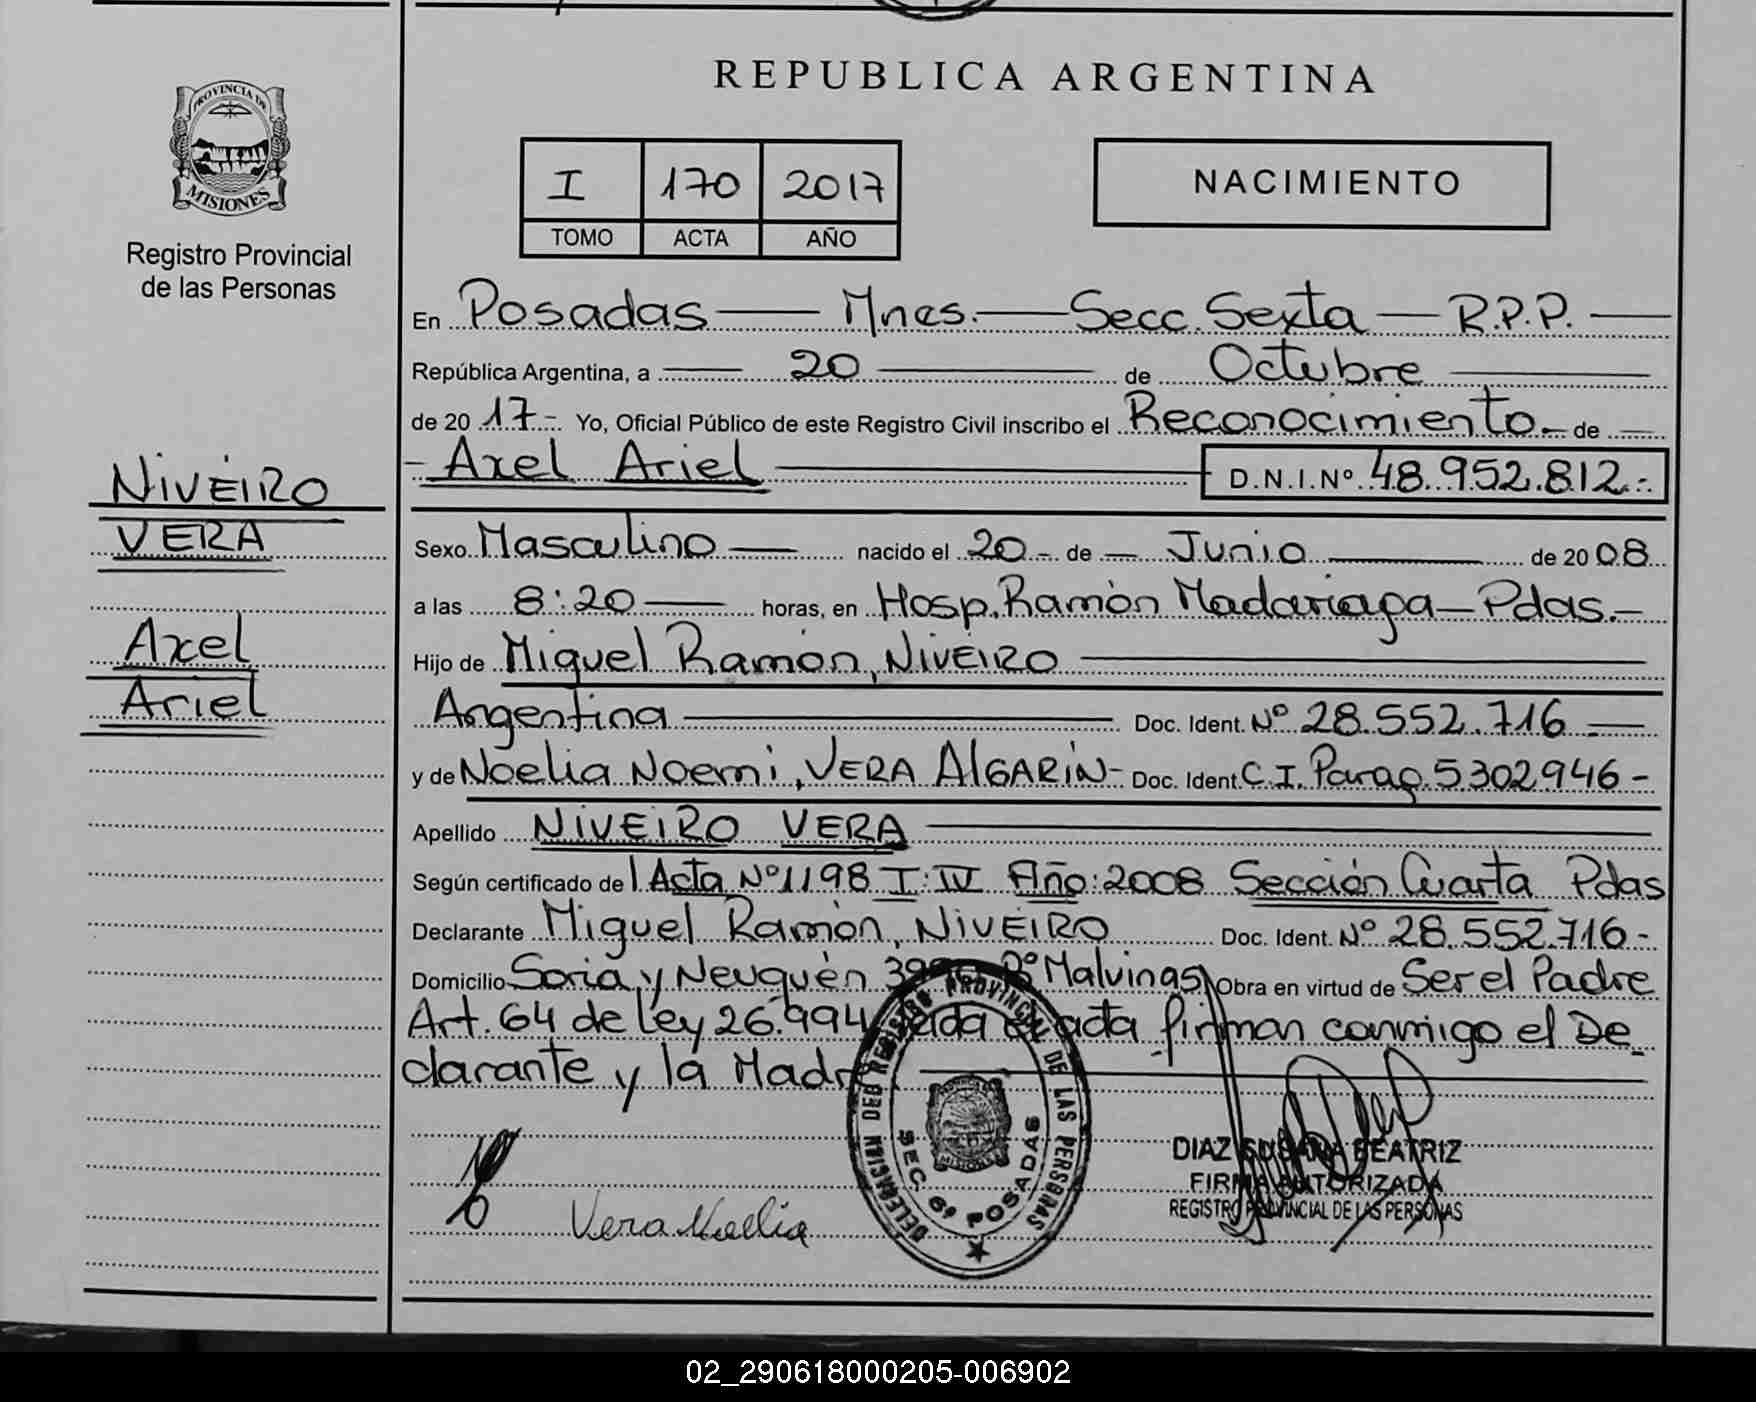 REPUBLICA ARGENTINA
PROVINCIA DE
MISIONES
Registro Provincial
de las Personas
I 170 2017
TOMO ACTA AÑO
NACIMIENTO
En Posadas — Mnes. — Secc. Sexta — R.P.P. —
República Argentina, a — 20 — de Octubre —
de 20 17.- Yo, Oficial Público de este Registro Civil inscribo el Reconocimiento.- de —
- Axel Ariel — D.N.I.Nº 48.952.812.-
NiVEIRO
VERA
Axel
Ariel
Sexo Masculino — nacido el 20 - de — Junio — de 20 08
a las 8:20 — horas, en Hosp. Ramón Madariaga — Pdas.-
Hijo de Miguel Ramón, NiVEiRO —
Argentina — Doc. Ident. Nº 28.552.716 —
y de Noelia Noemi, VERA AlGARíN - Doc. Ident. C.I. Parag. 5302946 -
Apellido NiVEiRO VERA —
Según certificado de Acta Nº 1198 T: IV Año: 2008 Sección Cuarta Pdas
Declarante Miguel Ramón, NiVEiRO Doc. Ident. Nº 28.552.716 -
Domicilio Soria y Neuquén Bº Malvinas Obra en virtud de Ser el Padre
Art. 64 de Ley 26.994 acta firman conmigo el De
clarante y la Madre —
DELEGACION DEL REGISTRO PROVINCIAL DE LAS PERSONAS
SEC. 6ª POSADAS
MISIONES
Vera Noelia
DIAZ SUSANA BEATRIZ
FIRMA AUTORIZADA
REGISTRO PROVINCIAL DE LAS PERSONAS
02_290618000205-006902